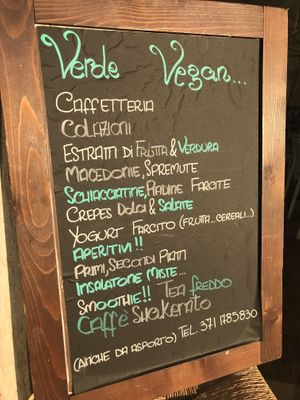 Verde Vegan...
CAFFETTERIA
COLAZIONI
ESTRATTI Di FRUTTA & VERDURA
MACEDONIE, SPREMUTE
SCHIACCIATINE, PIADINE FARCITE
CREPES DOLCI & SALATE
YOGURT FARCITO (FRUTTA...CEREALI...)
APERITIVI!!
PRIMI, SECONDI PIATTI
INSALATONE MISTE...
SMOOTHIE!! TEA FREDDO
CAFFE' SHAKERATO
(ANCHE DA ASPORTO) TEL. 371 1785830